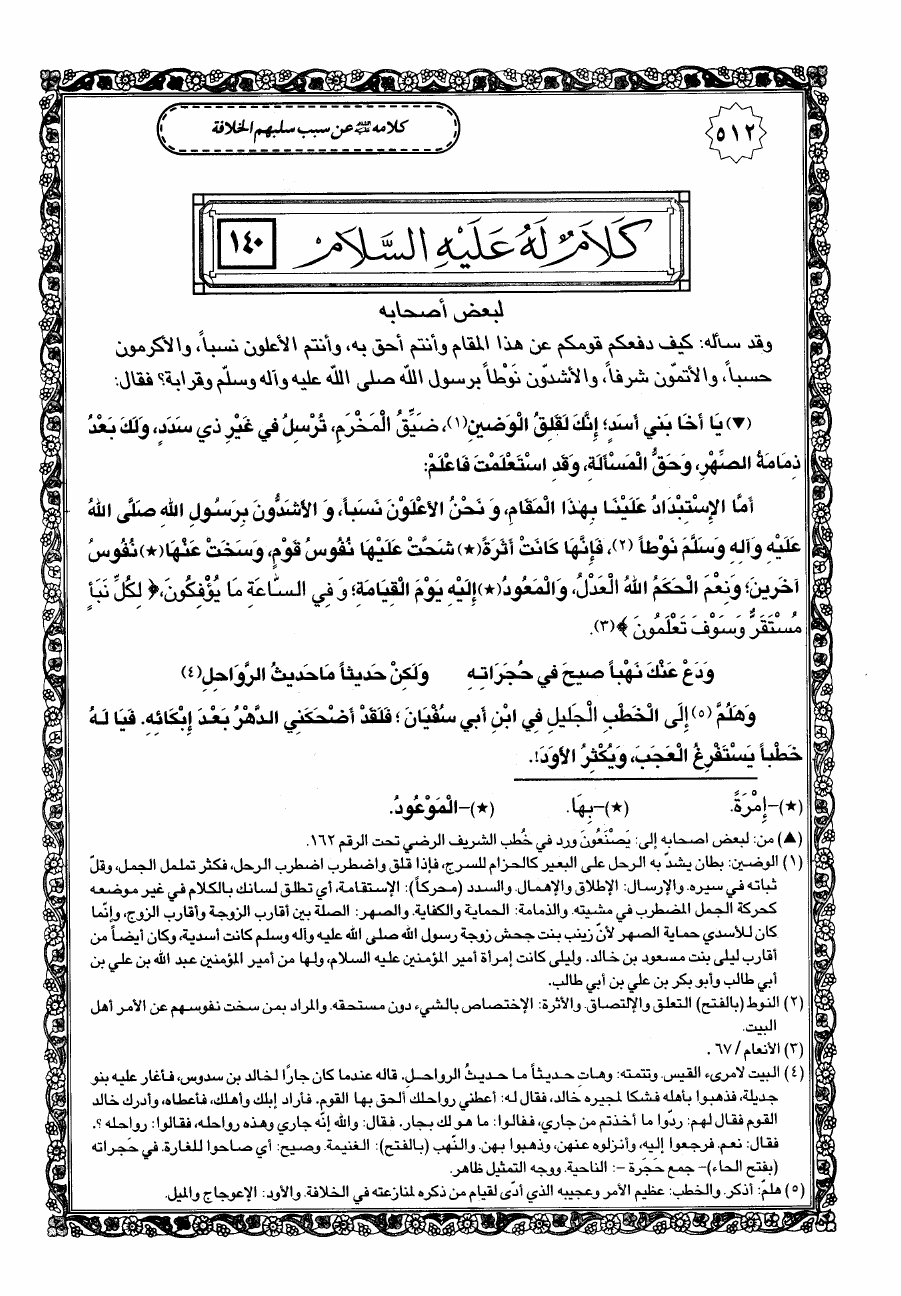 ٥١٢
كلامه عليه السلام عن سبب سلبهم الخلافة
كَلَامٌ لَهُ عَلَيْهِ السَّلَامُ
١٤٠
لبعض أصحابه
وقد سأله: كيف دفعكم قومكم عن هذا المقام وأنتم أحق به، وأنتم الأعلون نسباً، والأكرمون
حسباً، والأتمّون شرفاً، والأشدّون نَوْطاً برسول الله صلى الله عليه وآله وسلّم وقرابة؟ فقال:
(▼) يَا أَخَا بَني أَسَدٍ؛ إِنَّكَ لَقَلِقُ الْوَضينِ(١)، ضَيِّقُ الْمَخْرَمِ، تُرْسِلُ في غَيْرِ ذي سَدَدٍ، وَلَكَ بَعْدُ
ذِمَامَةُ الصِّهْرِ، وَحَقُّ الْمَسْأَلَةِ، وَقَدِ اسْتَعْلَمْتَ فَاعْلَمْ:
أَمَّا الاِسْتِبْدَادُ عَلَيْنَا بِهٰذَا الْمَقَامِ، وَ نَحْنُ الأَعْلَوْنَ نَسَباً، وَ الأَشَدُّونَ بِرَسُولِ اللهِ صَلَّى اللهُ
عَلَيْهِ وَآلِهِ وَسَلَّمَ نَوْطاً (٢)، فَإِنَّهَا كَانَتْ أَثَرَةً(★) شَحَّتْ عَلَيْهَا نُفُوسُ قَوْمٍ، وَسَخَتْ عَنْهَا(★)نُفُوسُ
آخَرينَ؛ وَنِعْمَ الْحَكَمُ اللهُ الْعَدْلُ، وَالْمَعْوَدُ(★)إِلَيْهِ يَوْمَ الْقِيَامَةِ؛ وَ فِي السَّاعَةِ مَا يُؤْفِكُونَ،﴿ لِكُلِّ نَبَأٍ
مُسْتَقَرٌّ وَسَوْفَ تَعْلَمُونَ ﴾(٣).
وَدَعْ عَنْكَ نَهْباً صيحَ في حُجَرَاتِهِ وَلَكِنْ حَديثاً مَاحَديثُ الرَّوَاحِلِ(٤)
وَهَلُمَّ (٥) إِلَى الْخَطْبِ الْجَليلِ فِي ابْنِ أَبي سُفْيَانَ ؛ فَلَقَدْ أَضْحَكَنِي الدَّهْرُ بَعْدَ إِبْكَائِهِ. فَيَا لَهُ
خَطْباً يَسْتَفْرِغُ الْعَجَبَ، وَيُكْثِرُ الأَوَدَ!.
(★)-إِمْرَةً. (★)-بِهَا. (★)-الْمَوْعُودُ.
(▲) من: لبعض اصحابه إلى: يَصْنَعُونَ ورد في خُطب الشريف الرضي تحت الرقم ١٦٢.
(١) الوضين: بطان يشدّ به الرحل على البعير كالحزام للسرج، فإذا قلق واضطرب اضطرب الرحل، فكثر تململ الجمل، وقلّ
ثباته في سيره. والإرسال: الإطلاق والإهمال. والسدد (محركاً): الإستقامة، أي تطلق لسانك بالكلام في غير موضعه
كحركة الجمل المضطرب في مشيته. والذمامة: الحماية والكفاية. والصهر: الصلة بين أقارب الزوجة وأقارب الزوج، وإنّما
كان للأسدي حماية الصهر لأنّ زينب بنت جحش زوجة رسول الله صلى الله عليه وآله وسلم كانت أسدية، وكان أيضاً من
أقارب ليلى بنت مسعود بن خالد. وليلى كانت إمرأة أمير المؤمنين عليه السلام، ولها من أمير المؤمنين عبد الله بن علي بن
أبي طالب وأبو بكر بن علي بن أبي طالب.
(٢) النوط (بالفتح) التعلق والإلتصاق. والأثرة: الإختصاص بالشيء دون مستحقه. والمراد بمن سخت نفوسهم عن الأمر أهل
البيت.
(٣) الأنعام/ ٦٧ .
(٤) البيت لامرىء القيس. وتتمته: وهاتِ حديثاً ما حديثُ الرواحلِ. قاله عندما كان جارًا لخالد بن سدوس، فأغار عليه بنو
جديلة، فذهبوا بأهله فشكا لمجيره خالد، فقال له: أعطني رواحلك ألحق بها القوم. فأراد إبلك وأهلك، فأعطاه، وأدرك خالد
القوم فقال لهم: ردّوا ما أخذتم من جاري، فقالوا: ما هو لك بجار. فقال: والله إنّه جاري وهذه رواحله، فقالوا: رواحله ؟.
فقال: نعم. فرجعوا إليه، وأنزلوه عنهن، وذهبوا بهن. والنّهب (بالفتح): الغنيمة. وصيح: أي صاحوا للغارة. في حَجراته
(بفتح الحاء)- جمع حَجَرة -: الناحية. ووجه التمثيل ظاهر.
(٥) هلمّ: أذكر. والخطب: عظيم الأمر وعجيبه الذي أدّى لقيام من ذكره لمنازعته في الخلافة. والأود: الإعوجاج والميل.